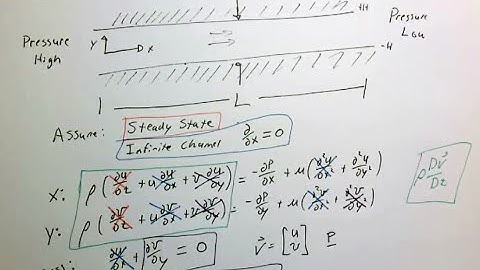 +H
Pressure
High
Y
X
Pressure
Low
-H
L
Assume: Steady State
Infinite Channel ∂/∂x = 0
X: ρ(∂u/∂t + u ∂u/∂x + v ∂u/∂y) = -∂P/∂x + μ(∂²u/∂x² + ∂²u/∂y²)
Y: ρ(∂v/∂t + u ∂v/∂x + v ∂v/∂y) = -∂P/∂y + μ(∂²v/∂x² + ∂²v/∂y²)
ρ Dv⃗/Dt
∂u/∂x + ∂v/∂y = 0
v⃗ = [u v] P